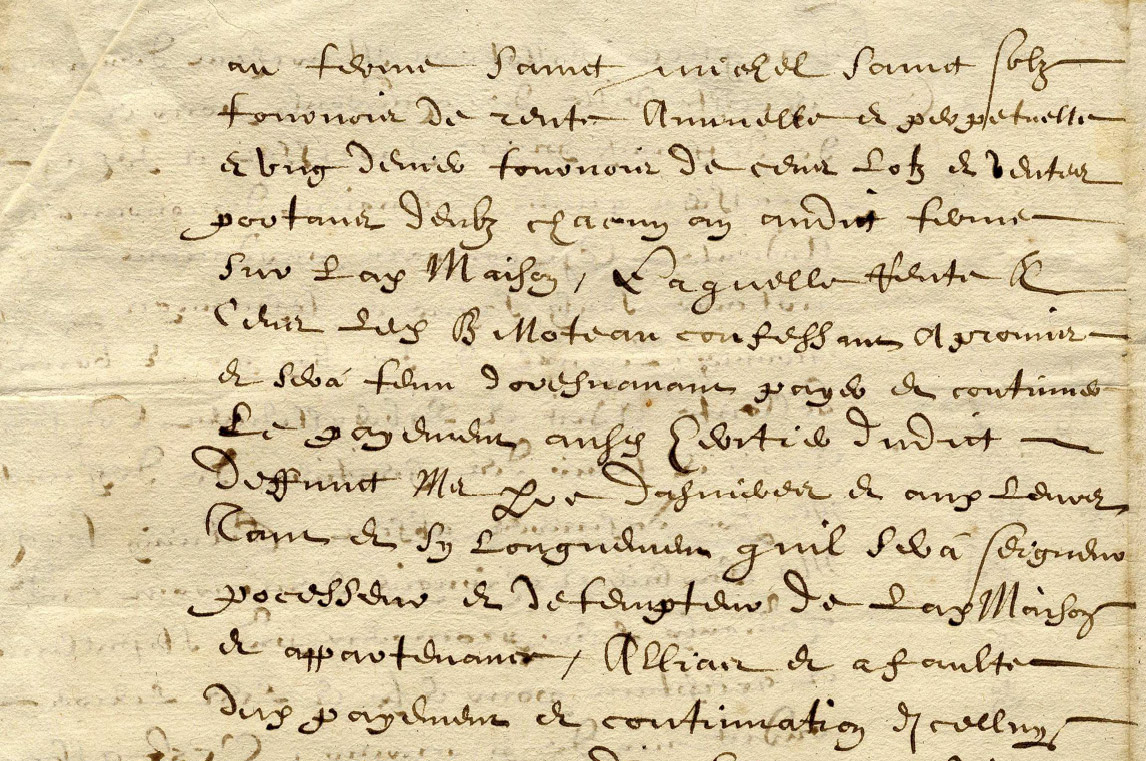 au terme Sainct michel Sainct solz
tournois de rente Annuelle et perpetuelle
et ung denier tournois de cens Lotz et ventes
portans deubz chacun an audict terme
sur Lad Maison / Laquelle Rente &
Cens led B Moteau confessant A promis
et sera tenu doresnavant payer et continuer
Le payement ausd heritiers dudict
Deffunct Me et aux Leurs
Tant et sy Longuement quil sera seigneur
pocesseur et detempteur de Lad Maison
et appartenance / et a faulte
dud payement et continuation dicelluy